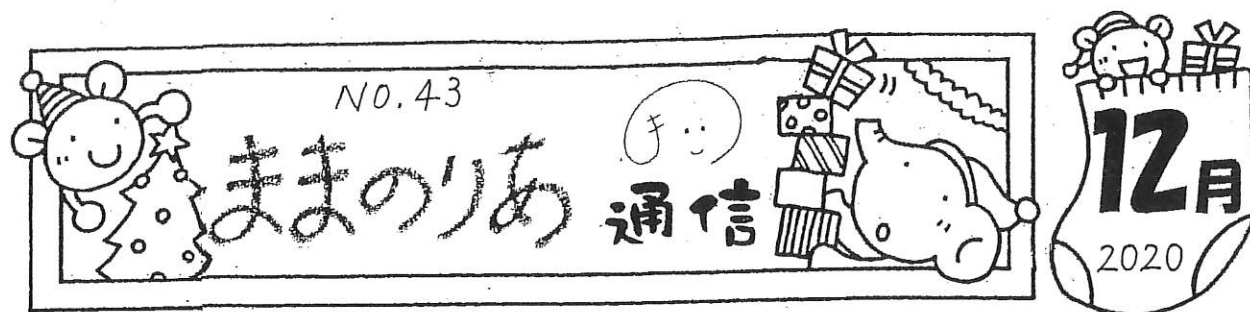 NO.43
ままのりあ 通信
ま
12月
2020